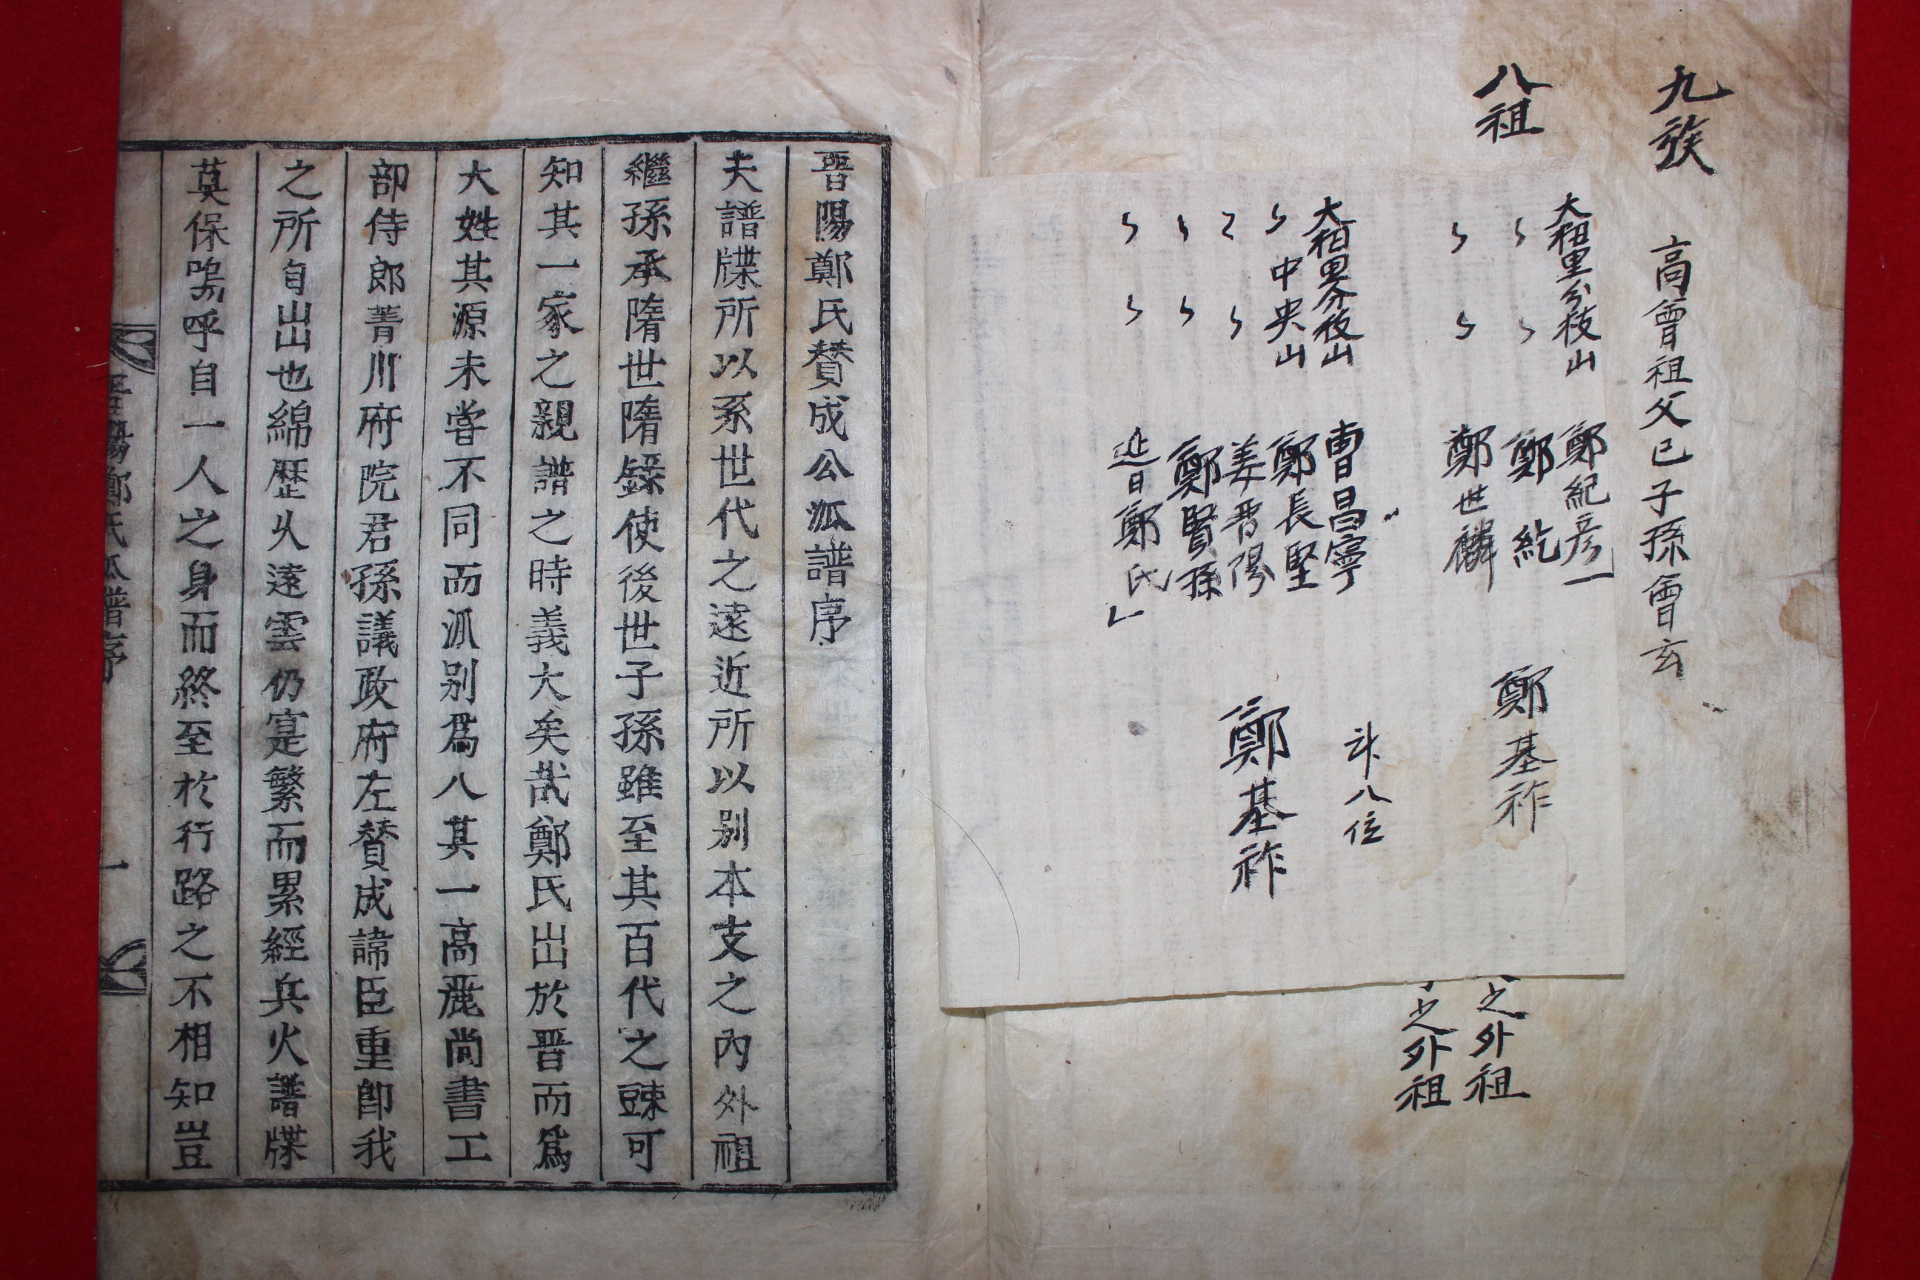 九族 高曾祖父己子孫曾玄
八祖
之外祖
之外祖
大柤里分枝山 鄭紀彦
鄭紇
鄭世麟
鄭基祚
大柤里分枝山 曺昌寧
中央山 鄭長堅
姜晋陽
鄭賢孫
延日鄭氏
計八位
鄭基祚
晋陽鄭氏賛成公派譜序
夫譜牒所以系世代之遠近所以别本支之內外祖
繼孫承隋世隋錄使後世子孫雖至其百代之踈可
知其一家之親譜之時義大矣哉鄭氏出於晋而爲
大姓其源未嘗不同而派别爲八其一高麗尚書工
部侍郎菁川府院君孫議政府左賛成諱臣重卽我
之所自出也綿歷久遠雲仍寔繁而累經兵火譜牒
莫保嗚呼自一人之身而終至於行路之不相知豈
晋陽鄭氏派譜序 一